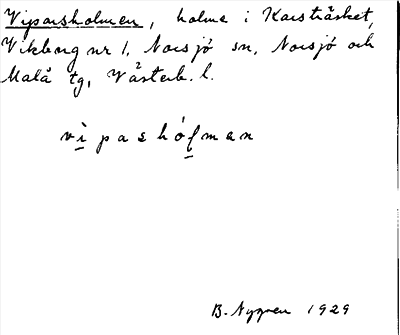 Viparsholmen, holme i Karsträsket,
Vikberg nr 1, Norsjö sn, Norsjö och
Malå tg, Västerb. l.
vi̱pashóḻman
B. Nygren 1929